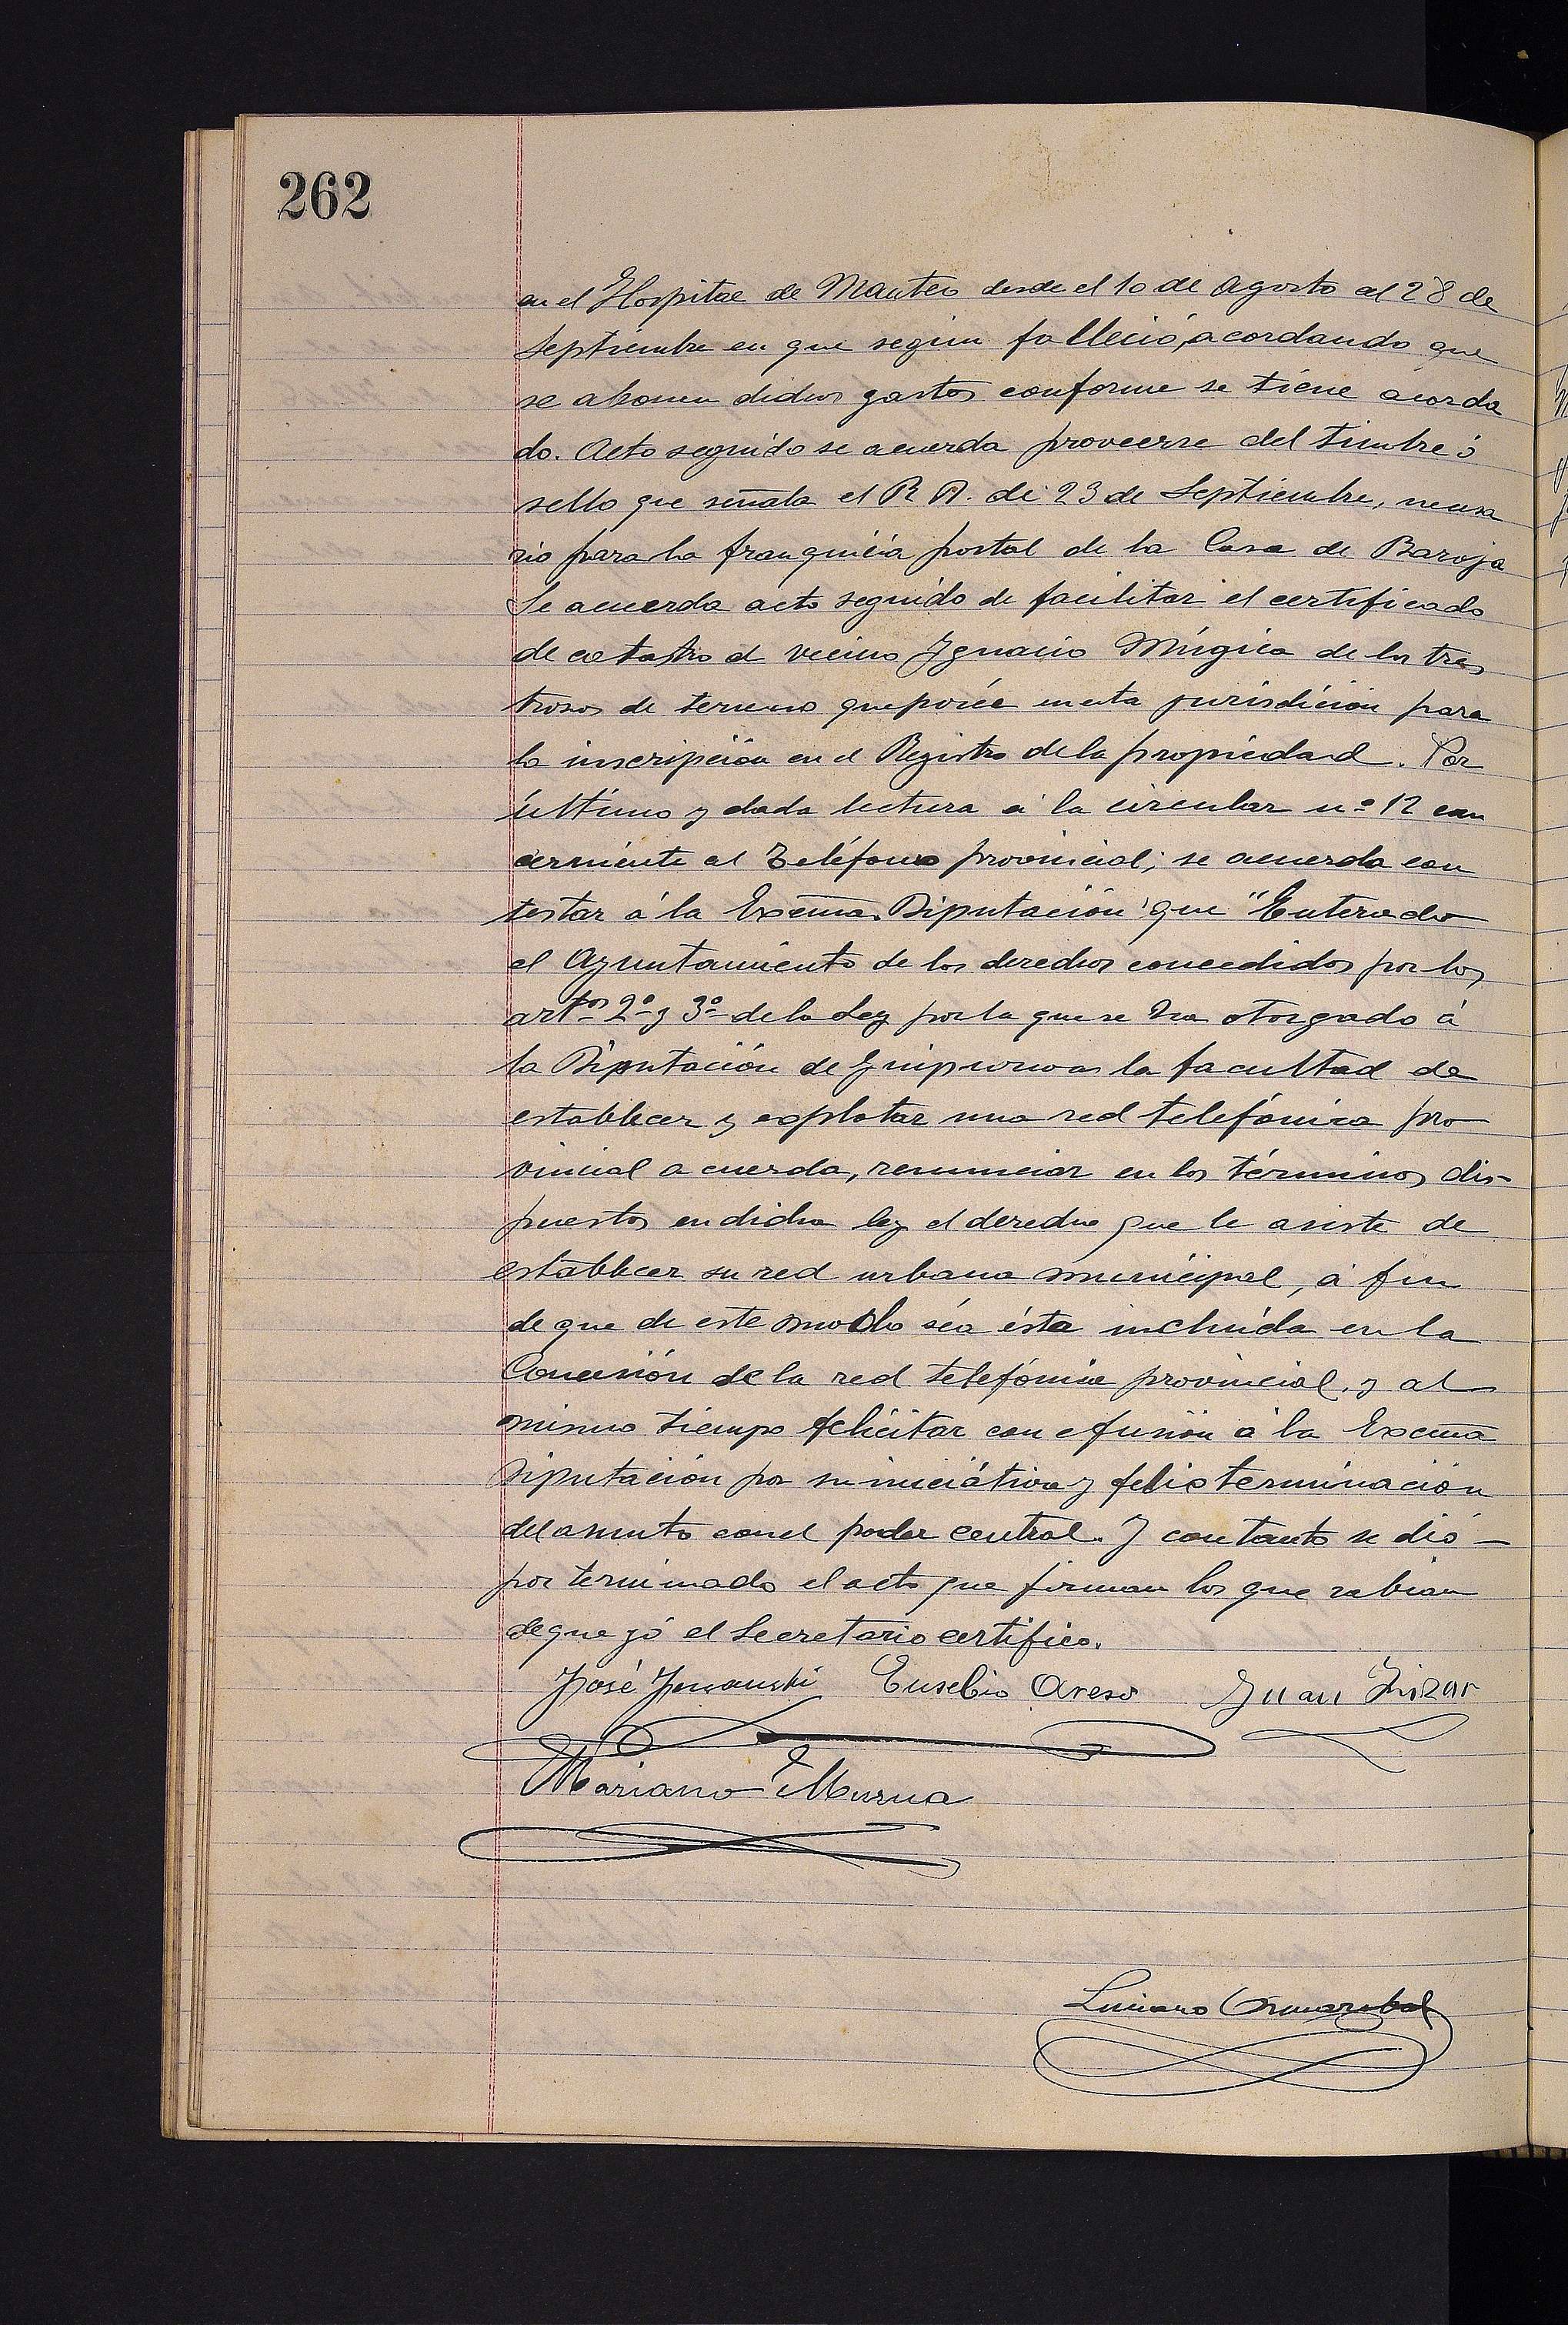 262
en el Hospital de Manteo desde el 10 de Agosto al 28 de
Septiembre en que según falleció, acordando que
se abonen dichos gastos conforme se tiene acorda
do. Acto seguido se acuerda proveerse del timbre ó
sello que señala el R D. de 23 de Septiembre, necesa
rio para la franquicia postal de la Casa de Baroja
Se acuerda acto seguido de facilitar el certificado
de catastro al vecino Ignacio Múgica de los tres
trozos de terreno que posée en esta jurisdicion para
la inscripción en el Registro de la propiedad. Por
último y dada lectura á la circular nº 12 con
cerniente al Teléfono provincial; se acuerda con
testar á la Excma. Diputación que "Enterado
el Ayuntamiento de los derechos concedidos por los
artos 2º y 3º de la Ley por la que se ha otorgado á
la Diputación de Guipuzcoa la facultad de
establecer y explotar una red telefónica pro
vincial acuerda, renunciar en los términos dis-
puestos en dicha ley el derecho que le asiste de
establecer su red urbana municipal, á fin
de que de este modo séa ésta incluída en la
Concesión de la red telefónica provincial. y al
mismo tiempo felicitar con efusión á la Excma
Diputación por su iniciativa y feliz terminación
del asunto con el poder central. Y con tanto se dió
por terminado el acto que firman los que sabian
de que yó el Secretario certifico.
José Eusebio Areso Juan
Mariano Murua
Luciano